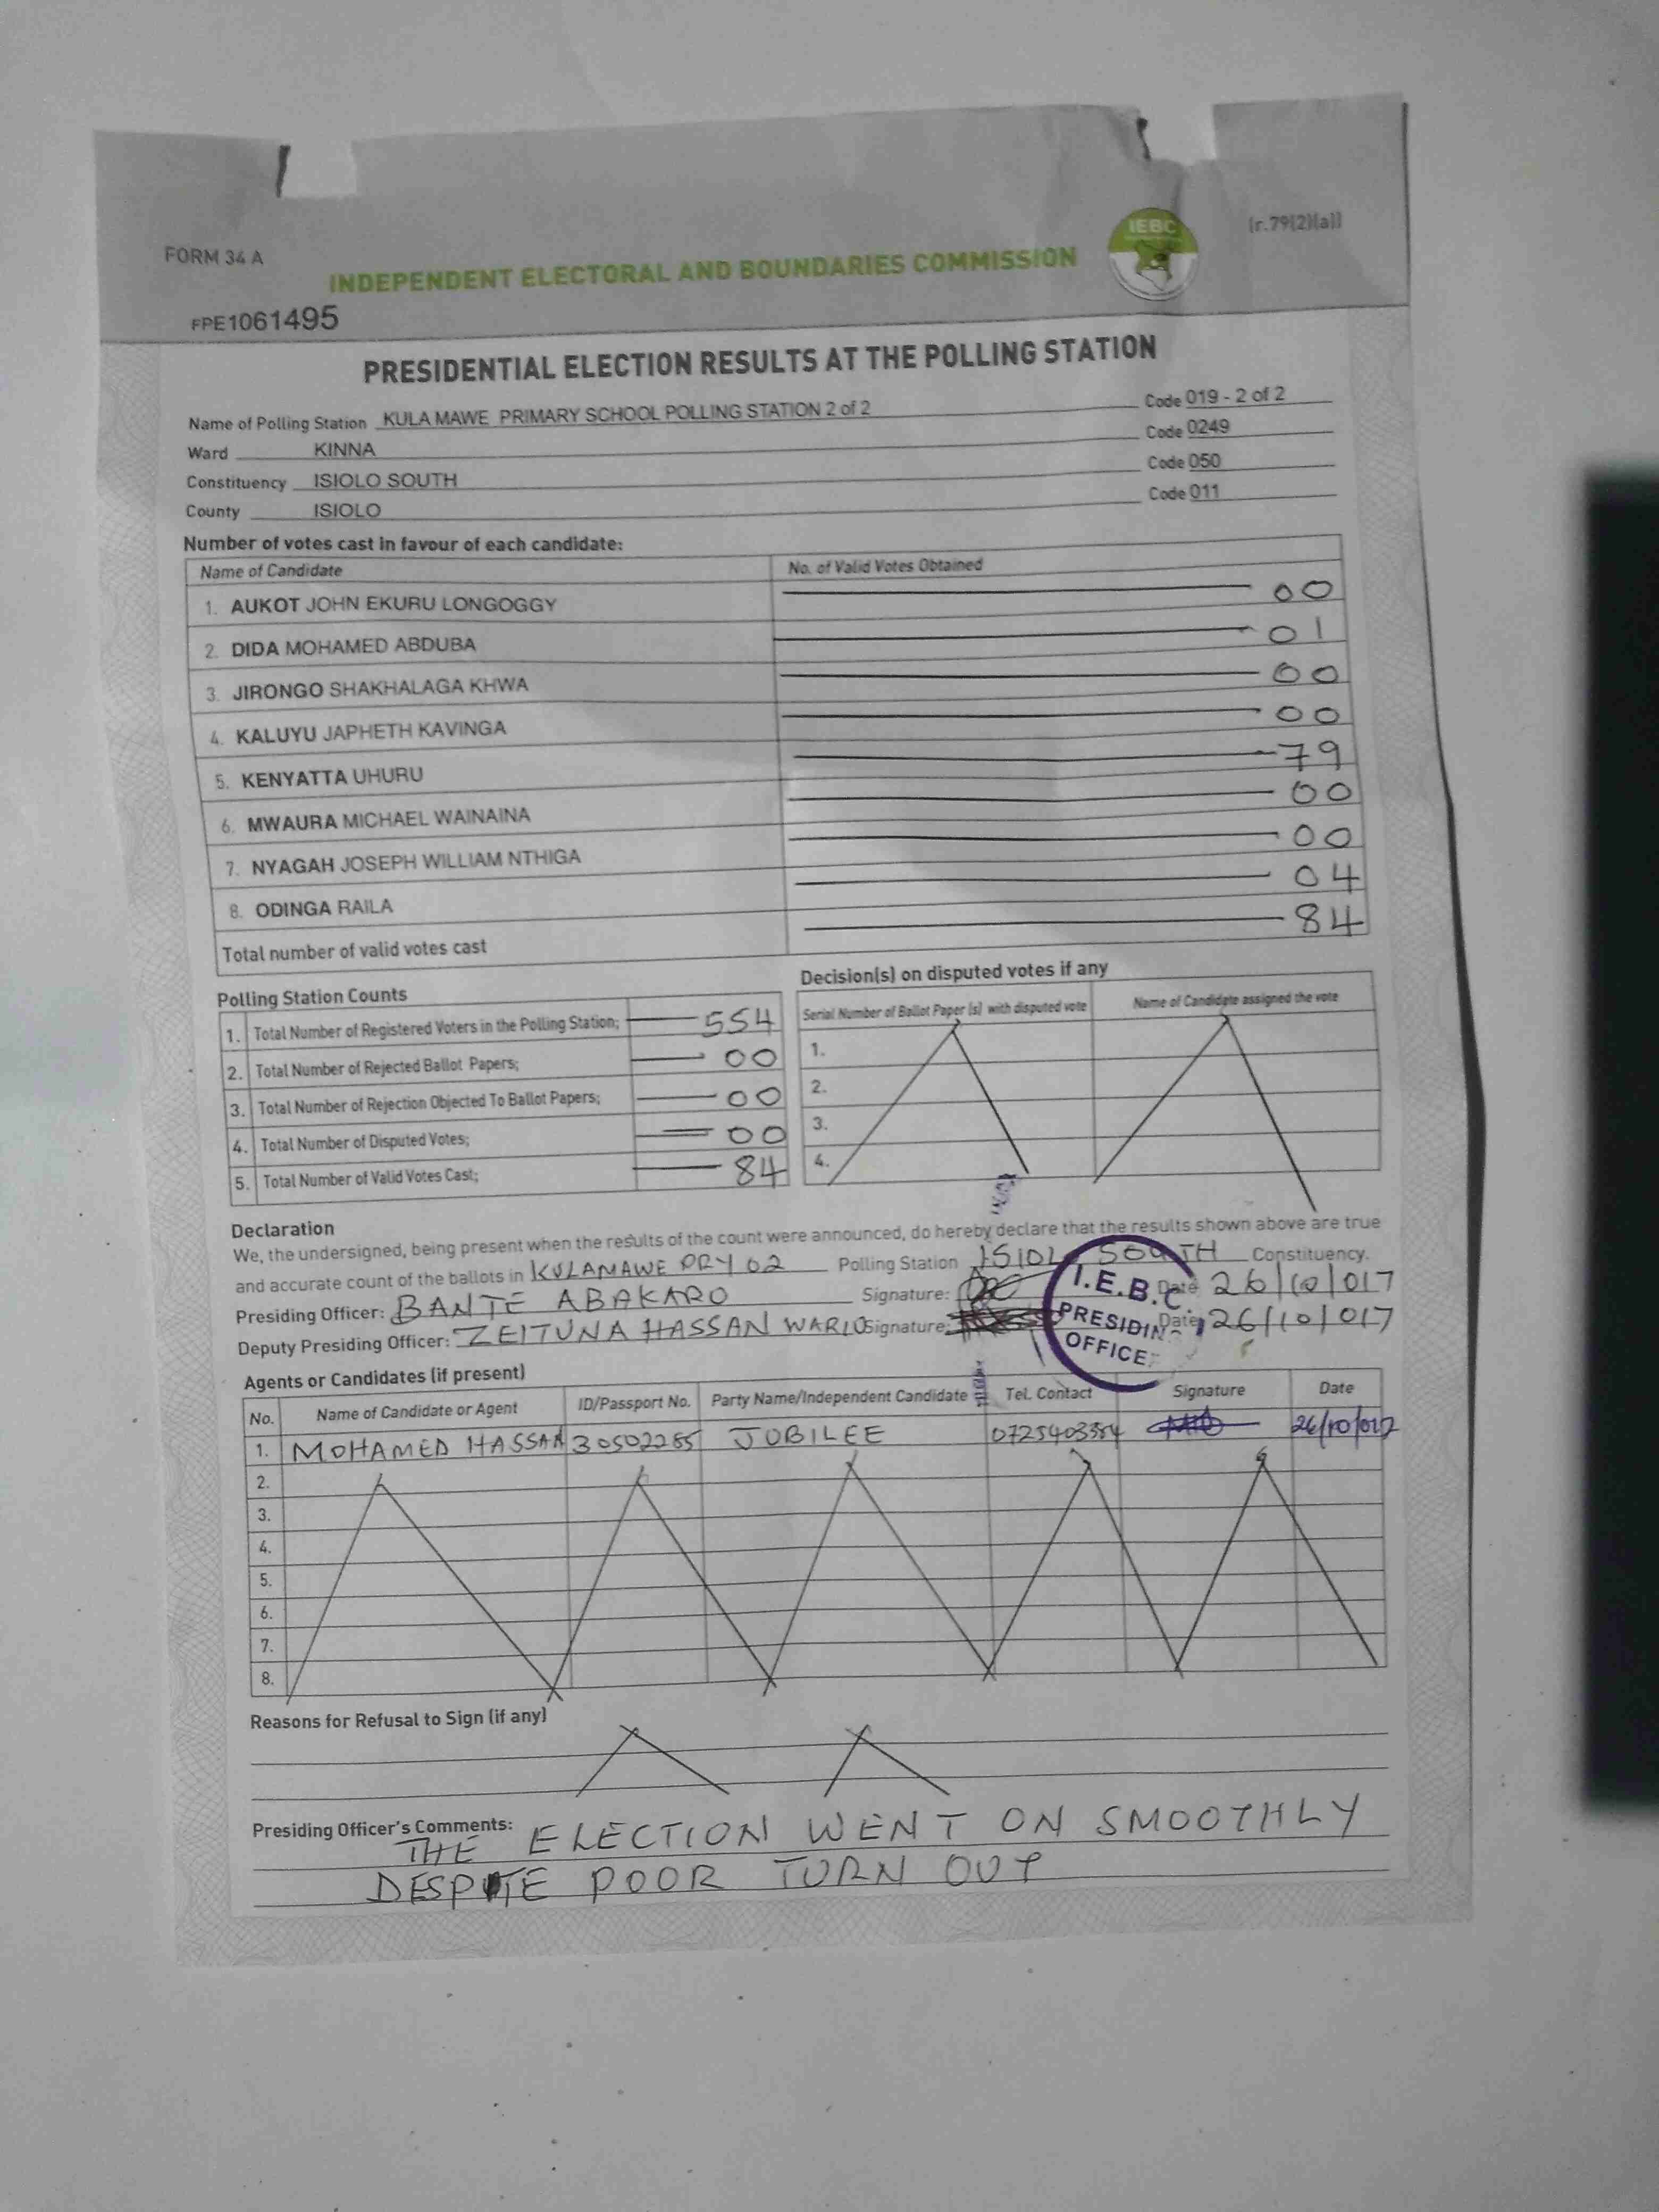 IEBC
(r.79(2)(a))
FORM 34 A
INDEPENDENT ELECTORAL AND BOUNDARIES COMMISSION
FPE1061495
PRESIDENTIAL ELECTION RESULTS AT THE POLLING STATION
Name of Polling Station KULA MAWE PRIMARY SCHOOL POLLING STATION 2 of 2 Code 019 - 2 of 2
Ward KINNA Code 0249
Constituency ISIOLO SOUTH Code 050
County ISIOLO Code 011
Number of votes cast in favour of each candidate:
Name of Candidate No. of Valid Votes Obtained
1. AUKOT JOHN EKURU LONGOGGY 00
2. DIDA MOHAMED ABDUBA 01
3. JIRONGO SHAKHALAGA KHWA 00
4. KALUYU JAPHETH KAVINGA 00
5. KENYATTA UHURU 79
6. MWAURA MICHAEL WAINAINA 00
7. NYAGAH JOSEPH WILLIAM NTHIGA 00
8. ODINGA RAILA 04
Total number of valid votes cast 84
Polling Station Counts
1. Total Number of Registered Voters in the Polling Station; 554
2. Total Number of Rejected Ballot Papers; 00
3. Total Number of Rejection Objected To Ballot Papers; 00
4. Total Number of Disputed Votes; 00
5. Total Number of Valid Votes Cast; 84
Decision(s) on disputed votes if any
Serial Number of Ballot Paper (s) with disputed vote Name of Candidate assigned the vote
1.
2.
3.
4.
Declaration
We, the undersigned, being present when the results of the count were announced, do hereby declare that the results shown above are true
and accurate count of the ballots in KULAMAWE PRY 02 Polling Station ISIOLO SOUTH Constituency.
Presiding Officer: BANTE ABAKARO Signature: Date 26/10/017
Deputy Presiding Officer: ZEITUNA HASSAN WARIO Signature: Date 26/10/017
I.E.B.C.
PRESIDING
OFFICER
Agents or Candidates (if present)
No. Name of Candidate or Agent ID/Passport No. Party Name/Independent Candidate Tel. Contact Signature Date
1. MOHAMED HASSAN 30502285 JUBILEE 0725403354 26/10/017
2.
3.
4.
5.
6.
7.
8.
Reasons for Refusal to Sign (if any)
Presiding Officer's Comments:
THE ELECTION WENT ON SMOOTHLY
DESPITE POOR TURN OUT